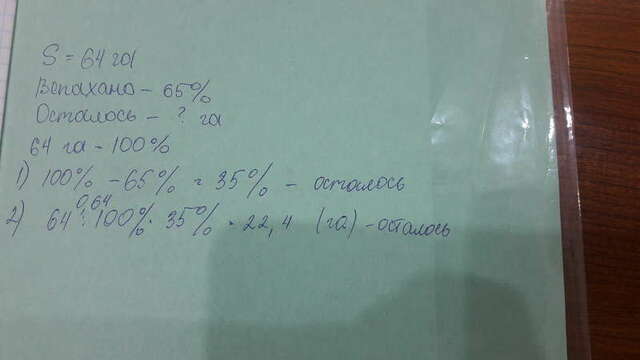 S = 64 га
Вспахано - 65%
Осталось - ? га
64 га - 100%
1) 100% - 65% = 35% - осталось
0,64
2) 64 : 100% · 35% = 22,4 (га) - осталось